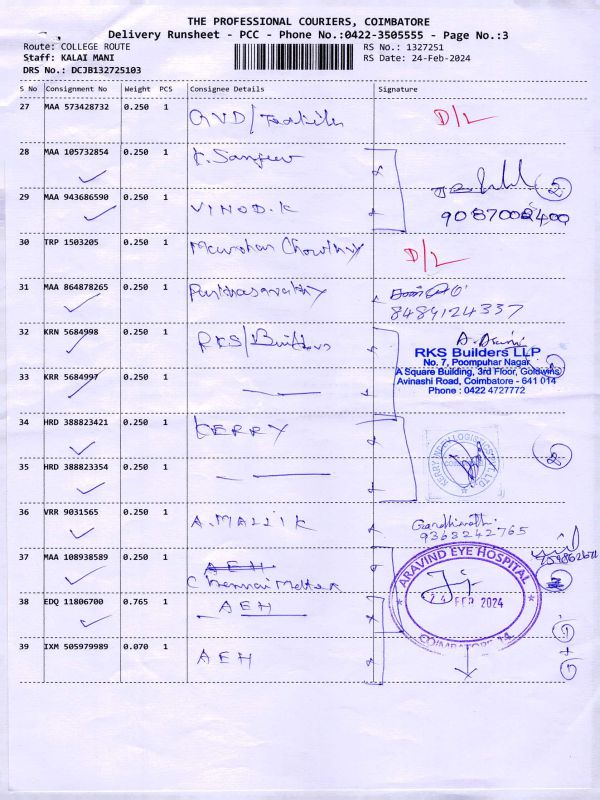 THE PROFESSIONAL COURIERS, COIMBATORE
Delivery Runsheet - PCC - Phone No.:0422-3505555 - Page No.:3
Route: COLLEGE ROUTE
Staff: KALAI MANI
DRS No.: DCJB132725103
RS No.: 1327251
RS Date: 24-Feb-2024
S No Consignment No Weight PCS Consignee Details Signature
27 MAA 573428732 0.250 1 D/L
28 MAA 105732854 0.250 1 K. Sanjeev
2
29 MAA 943686590 0.250 1 VINOD.K
30 TRP 1503205 0.250 1 Manohar Chowdhry D/L
31 MAA 864878265 0.250 1 Parthasarathy
8489124337
32 KRN 5684998 0.250 1 RKS/Builders
RKS Builders LLP
No. 7, Poompuhar Nagar,
A Square Building, 3rd Floor, Goldwins
Avinashi Road, Coimbatore - 641 014
Phone : 0422 4727772
33 KRR 5684997 0.250 1
34 HRD 388823421 0.250 1 KERRY
2
35 HRD 388823354 0.250 1
36 VRR 9031565 0.250 1 A. MALLIK
9363242765
37 MAA 108938589 0.250 1 AEH
Chennai Mekter
ARAVIND EYE HOSPITAL
24 FEB 2024
COIMBATORE-14.
38 EDQ 11806700 0.765 1 AEH
1
+
1
39 IXM 505979989 0.070 1 AEH